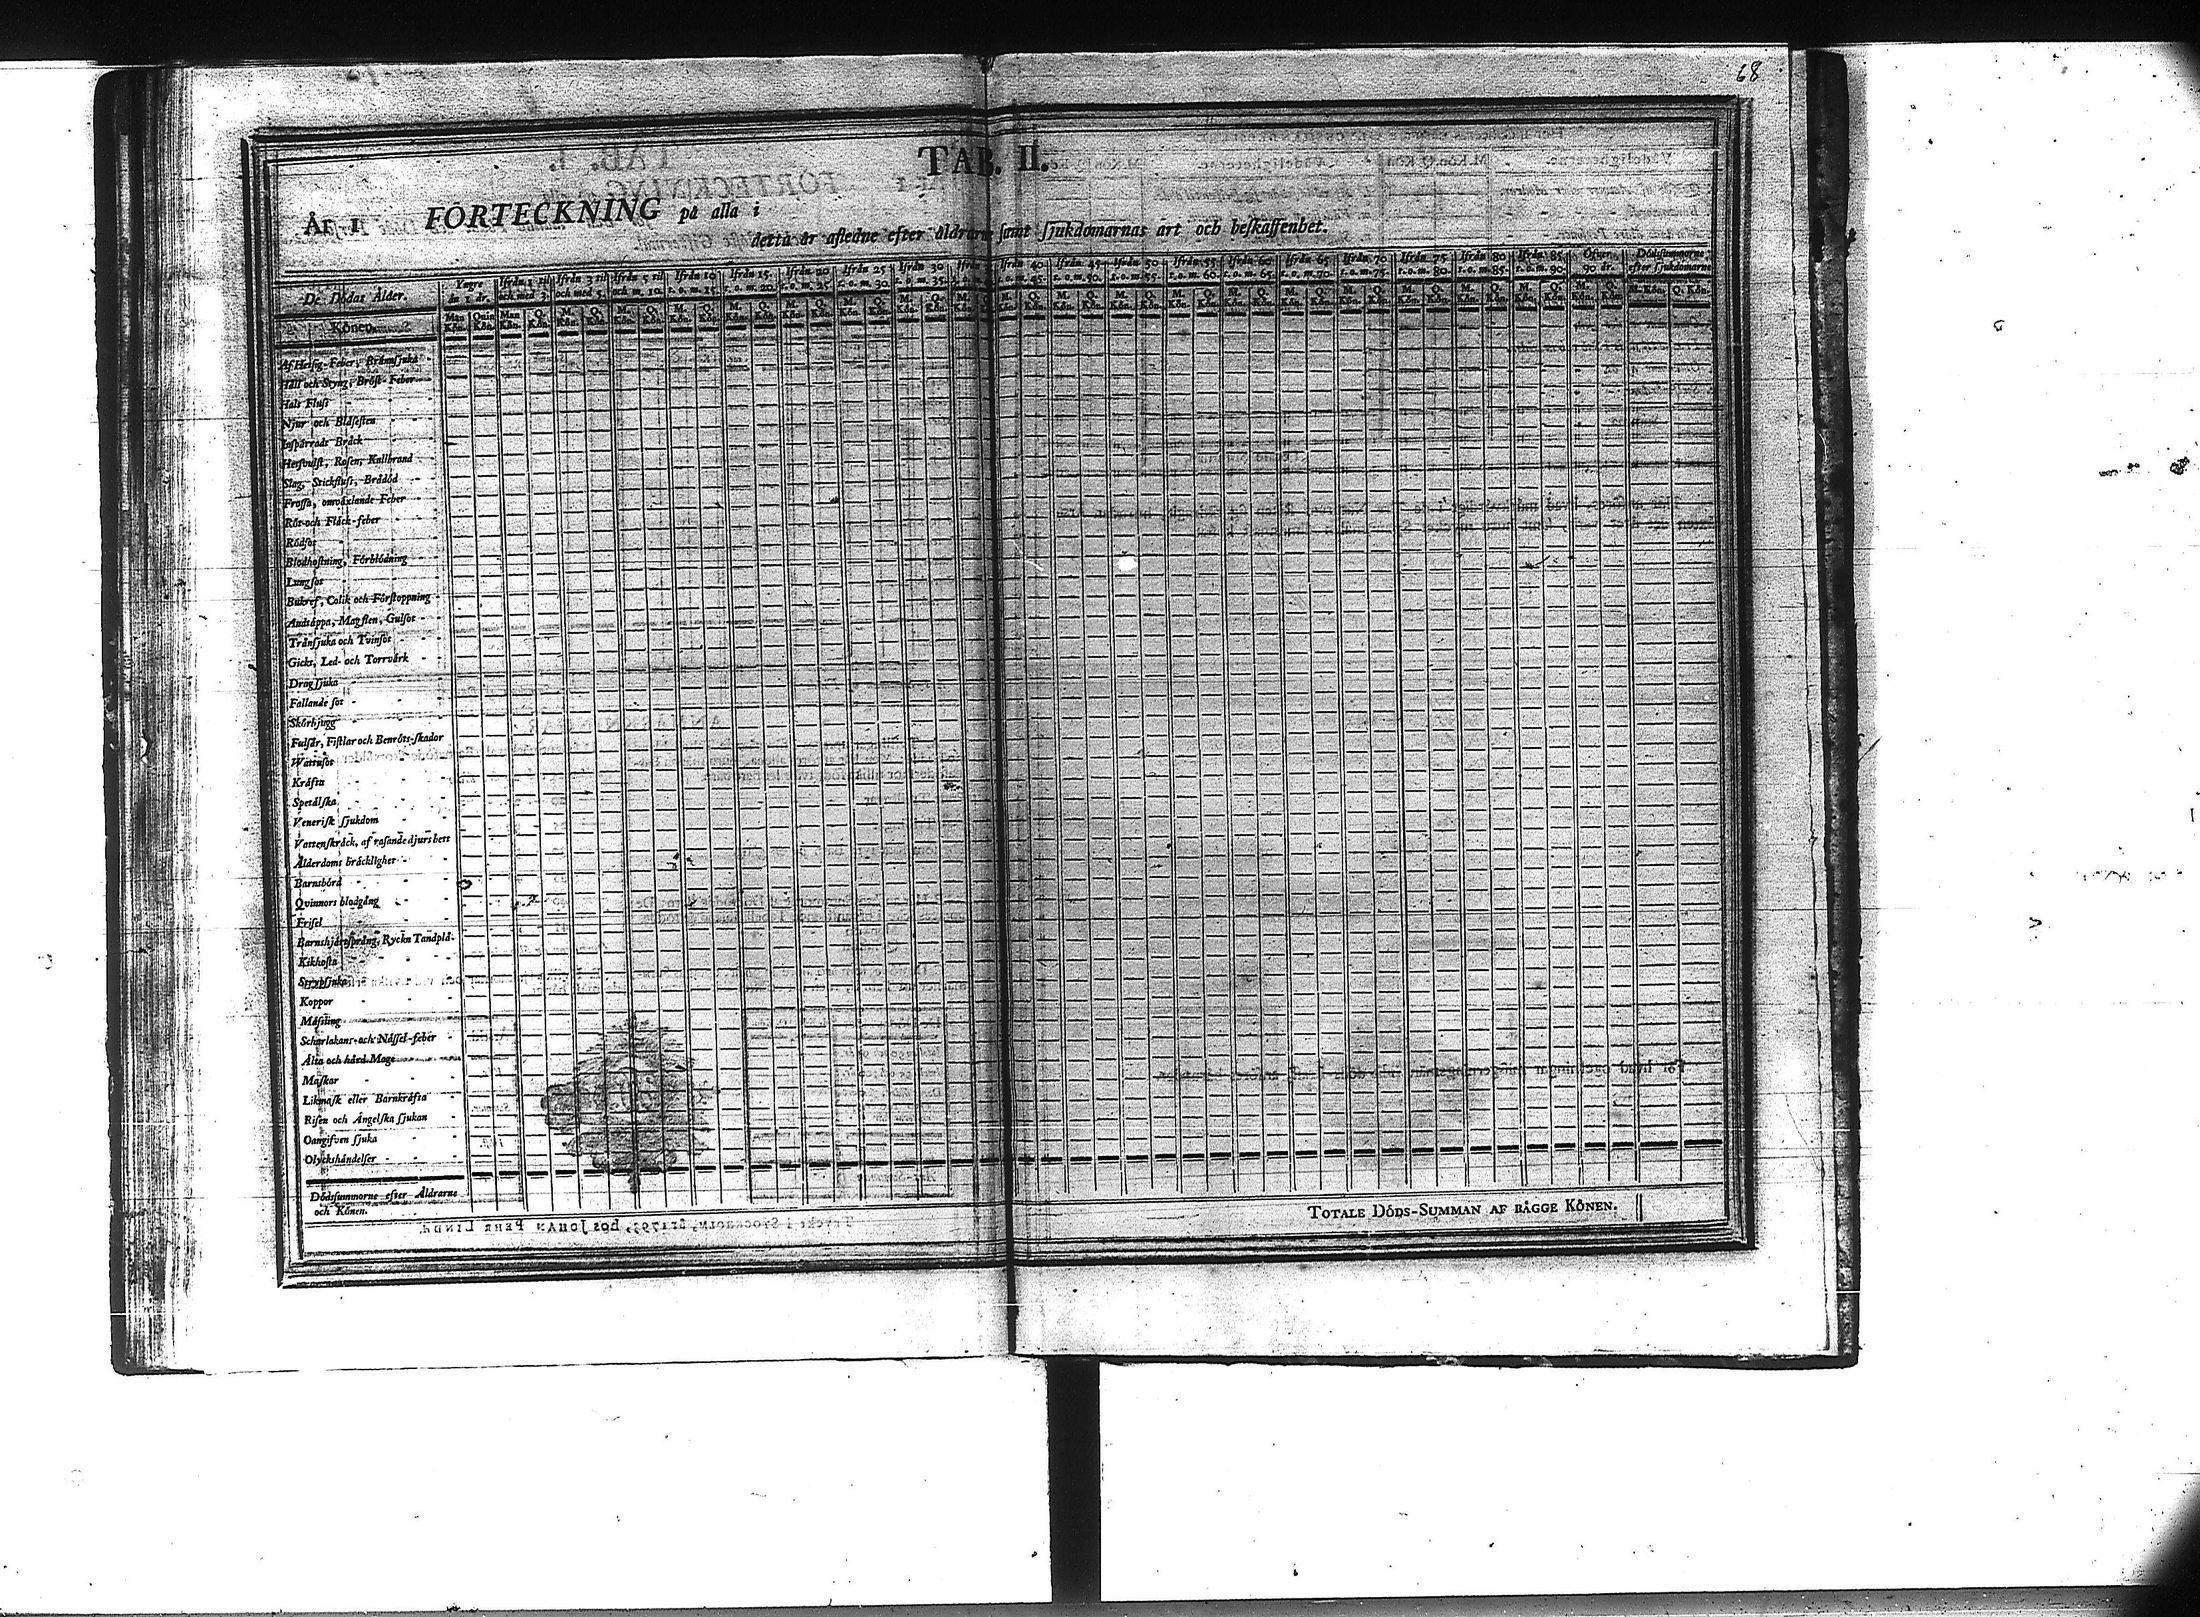 68
TAB. II.
År 1 FÖRTECKNING på alla i
detta år afledne efter åldrarne samt sjukdomarnas art och beskaffenhet.
De Dödas Ålder. Yngre än 1 år. Ifrån 1 til och med 3. Ifrån 3 til och med 5. Ifrån 5 til och m. 10. Ifrån 10 t. o. m. 15. Ifrån 15. t. o. m. 20. Ifrån 20 t. o. m. 25. Ifrån 25 t. o. m. 30. Ifrån 30 t. o. m. 35. Ifrån 40 t. o. m. 45. Ifrån 45 t. o. m. 50. Ifrån 50 t. o. m. 55. Ifrån 55 t. o. m. 60. Ifrån 60 t. o. m. 65. Ifrån 65 t. o. m. 70. Ifrån 70 t. o. m. 75. Ifrån 75 t. o. m. 80. Ifrån 80 t. o. m. 85. Ifrån 85 t. o. m. 90. Öfver 90 år. Dödssummorne efter sjukdomarne
Könen. Man Kön. Quin Kön. Man Kön. Q. Kön. M. Kön. Q. Kön. M. Kön. Q. Kön. M. Kön. Q. Kön. M. Kön. Q. Kön. M. Kön. Q. Kön. M. Kön. Q. Kön. M. Kön. Q. Kön. M. Kön. Q. Kön. M. Kön. Q. Kön. M. Kön. Q. Kön. M. Kön. Q. Kön. M. Kön. Q. Kön. M. Kön. Q. Kön. M. Kön. Q. Kön. M. Kön. Q. Kön. M. Kön. Q. Kön. M. Kön. Q. Kön. M. Kön. Q. Kön. M. Kön. Q. Kön.
Af Hetsig-Feber, Brännsjuka
Håll och Styng, Bröst-Feber
Hals Fluss
Njur och Blåssten
Inspärradt Bråck
Hetsvulst, Rosen, Kallbrand
Slag, Stickfluss, Brådöd
Frossa, omväxlande Feber
Röt-och Fläck-feber
Rödsot
Blodhostning, Förblödning
Lungsot
Bukref, Colik och Förstoppning
Andtäppa, Magsten, Gulsot
Trånsjuka och Tvinsot
Gickt, Led- och Torrvärk
Dragsjuka
Fallande sot
Skörbjugg
Fulsår, Fistlar och Benröts-skador
Wattusot
Kräfta
Spetälska
Venerisk sjukdom
Vattenskräck, af rasande djurs bett
Ålderdoms bräcklighet
Barnsbörd
Qvinnors blodgång
Frisel
Barnshjertsprång, Ryckn Tandplå-
Kikhosta
Strypsjuka
Koppor
Mässling
Scharlakans-och Nässel-feber
Ålta och hård Mage
Maskar
Likmask eller Barnkräfta
Risen och Ängelska sjukan
Oangifven sjuka
Olyckshändelser
Dödssummorne efter Åldrarne
och Könen.
TOTALE DÖDS-SUMMAN AF BÄGGE KÖNEN.